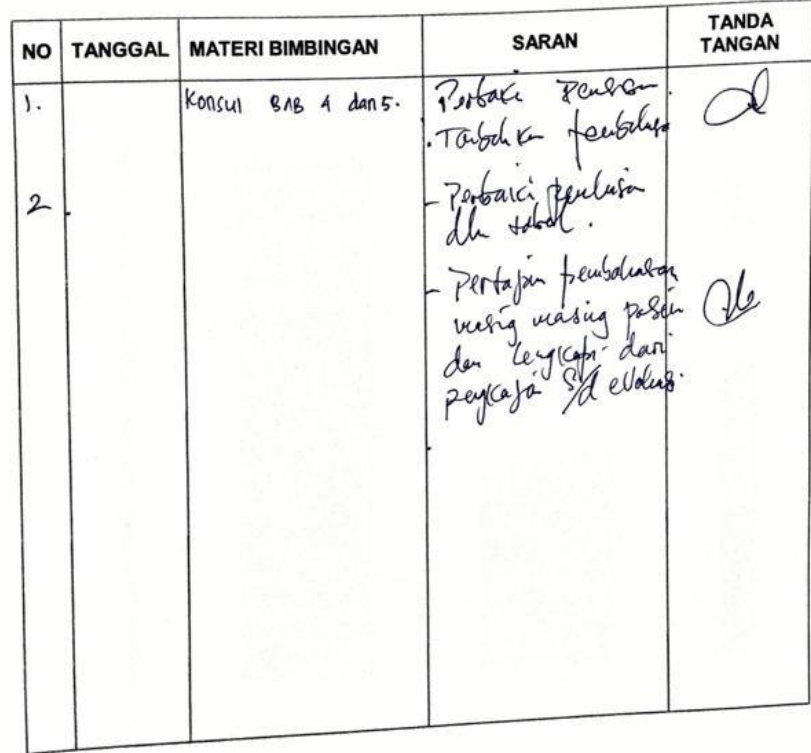 NO TANGGAL MATERI BIMBINGAN SARAN TANDA TANGAN
1. Konsul BAB 4 dan 5. Perbaiki
pembahasan
2 - Perbaiki penulisan
dlm tabel.
- Pertajam pembahasan
masing masing pasien
dan lengkapi dari
pengkajian s/d evaluasi.